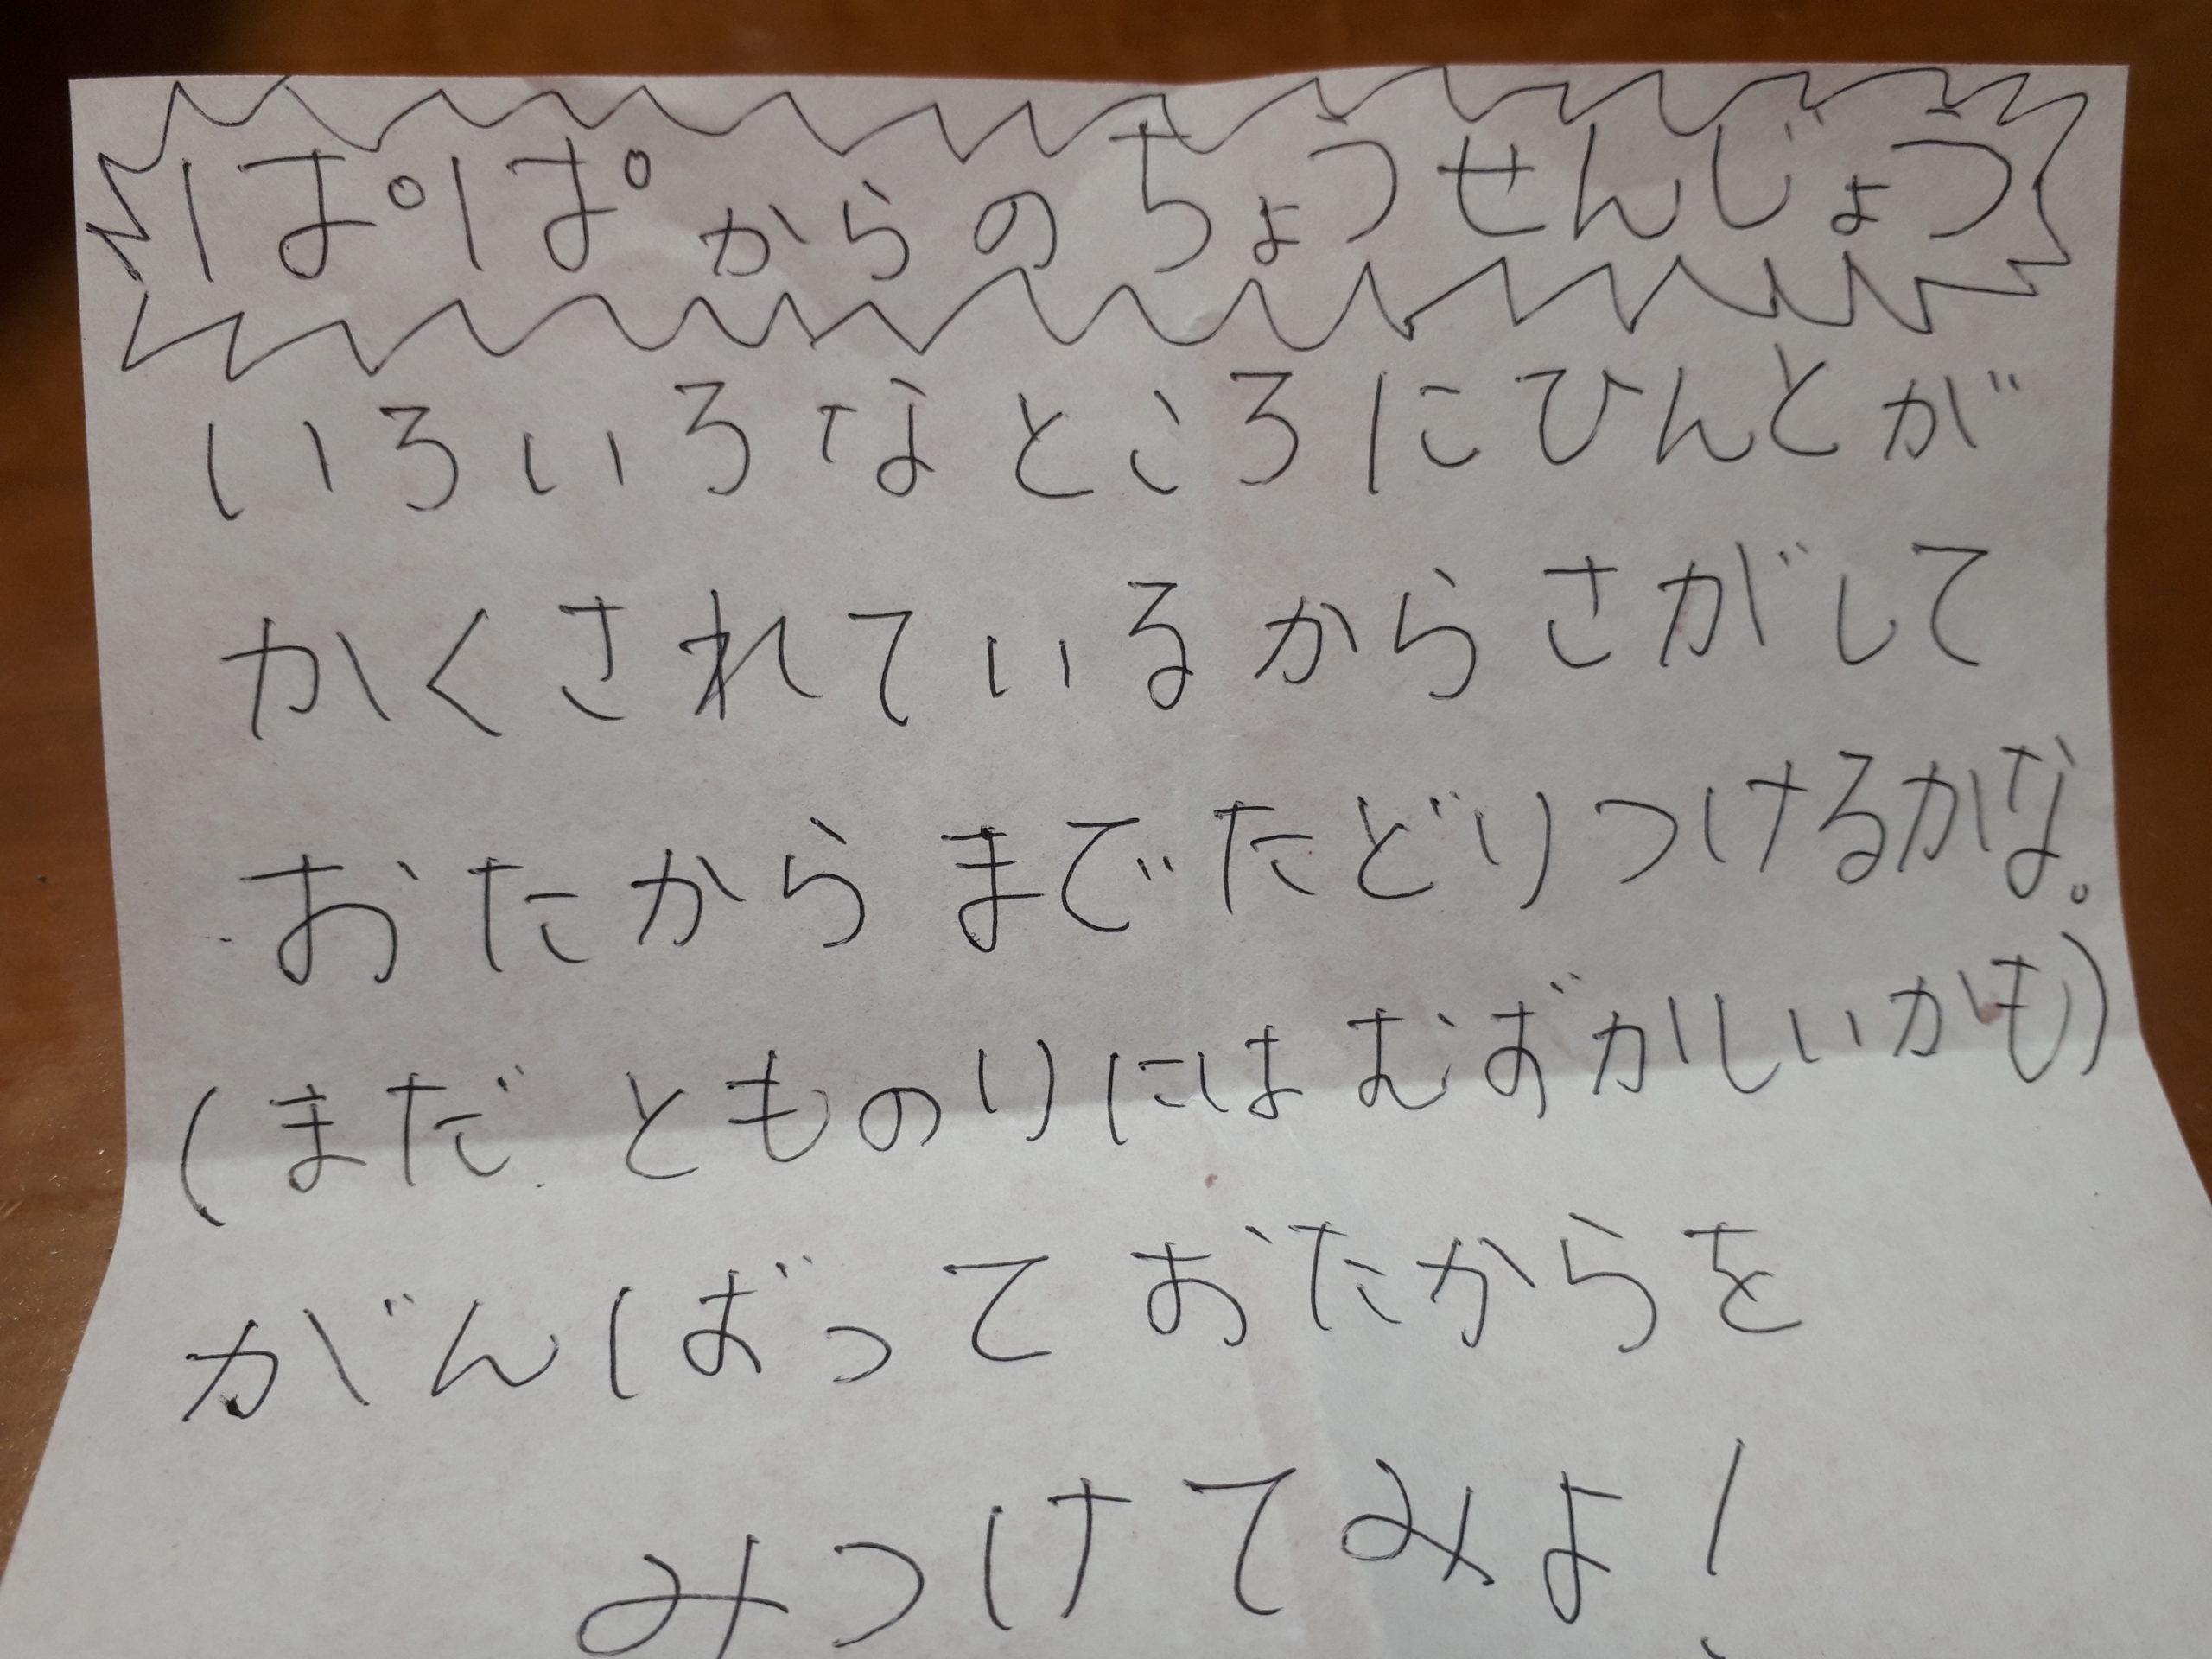 ぱぱからのちょうせんじょう
いろいろなところにひんとが
かくされているからさがして
おたからまでたどりつけるかな。
(まだとものりにはむずかしいかも)
がんばっておたからを
みつけてみよ!